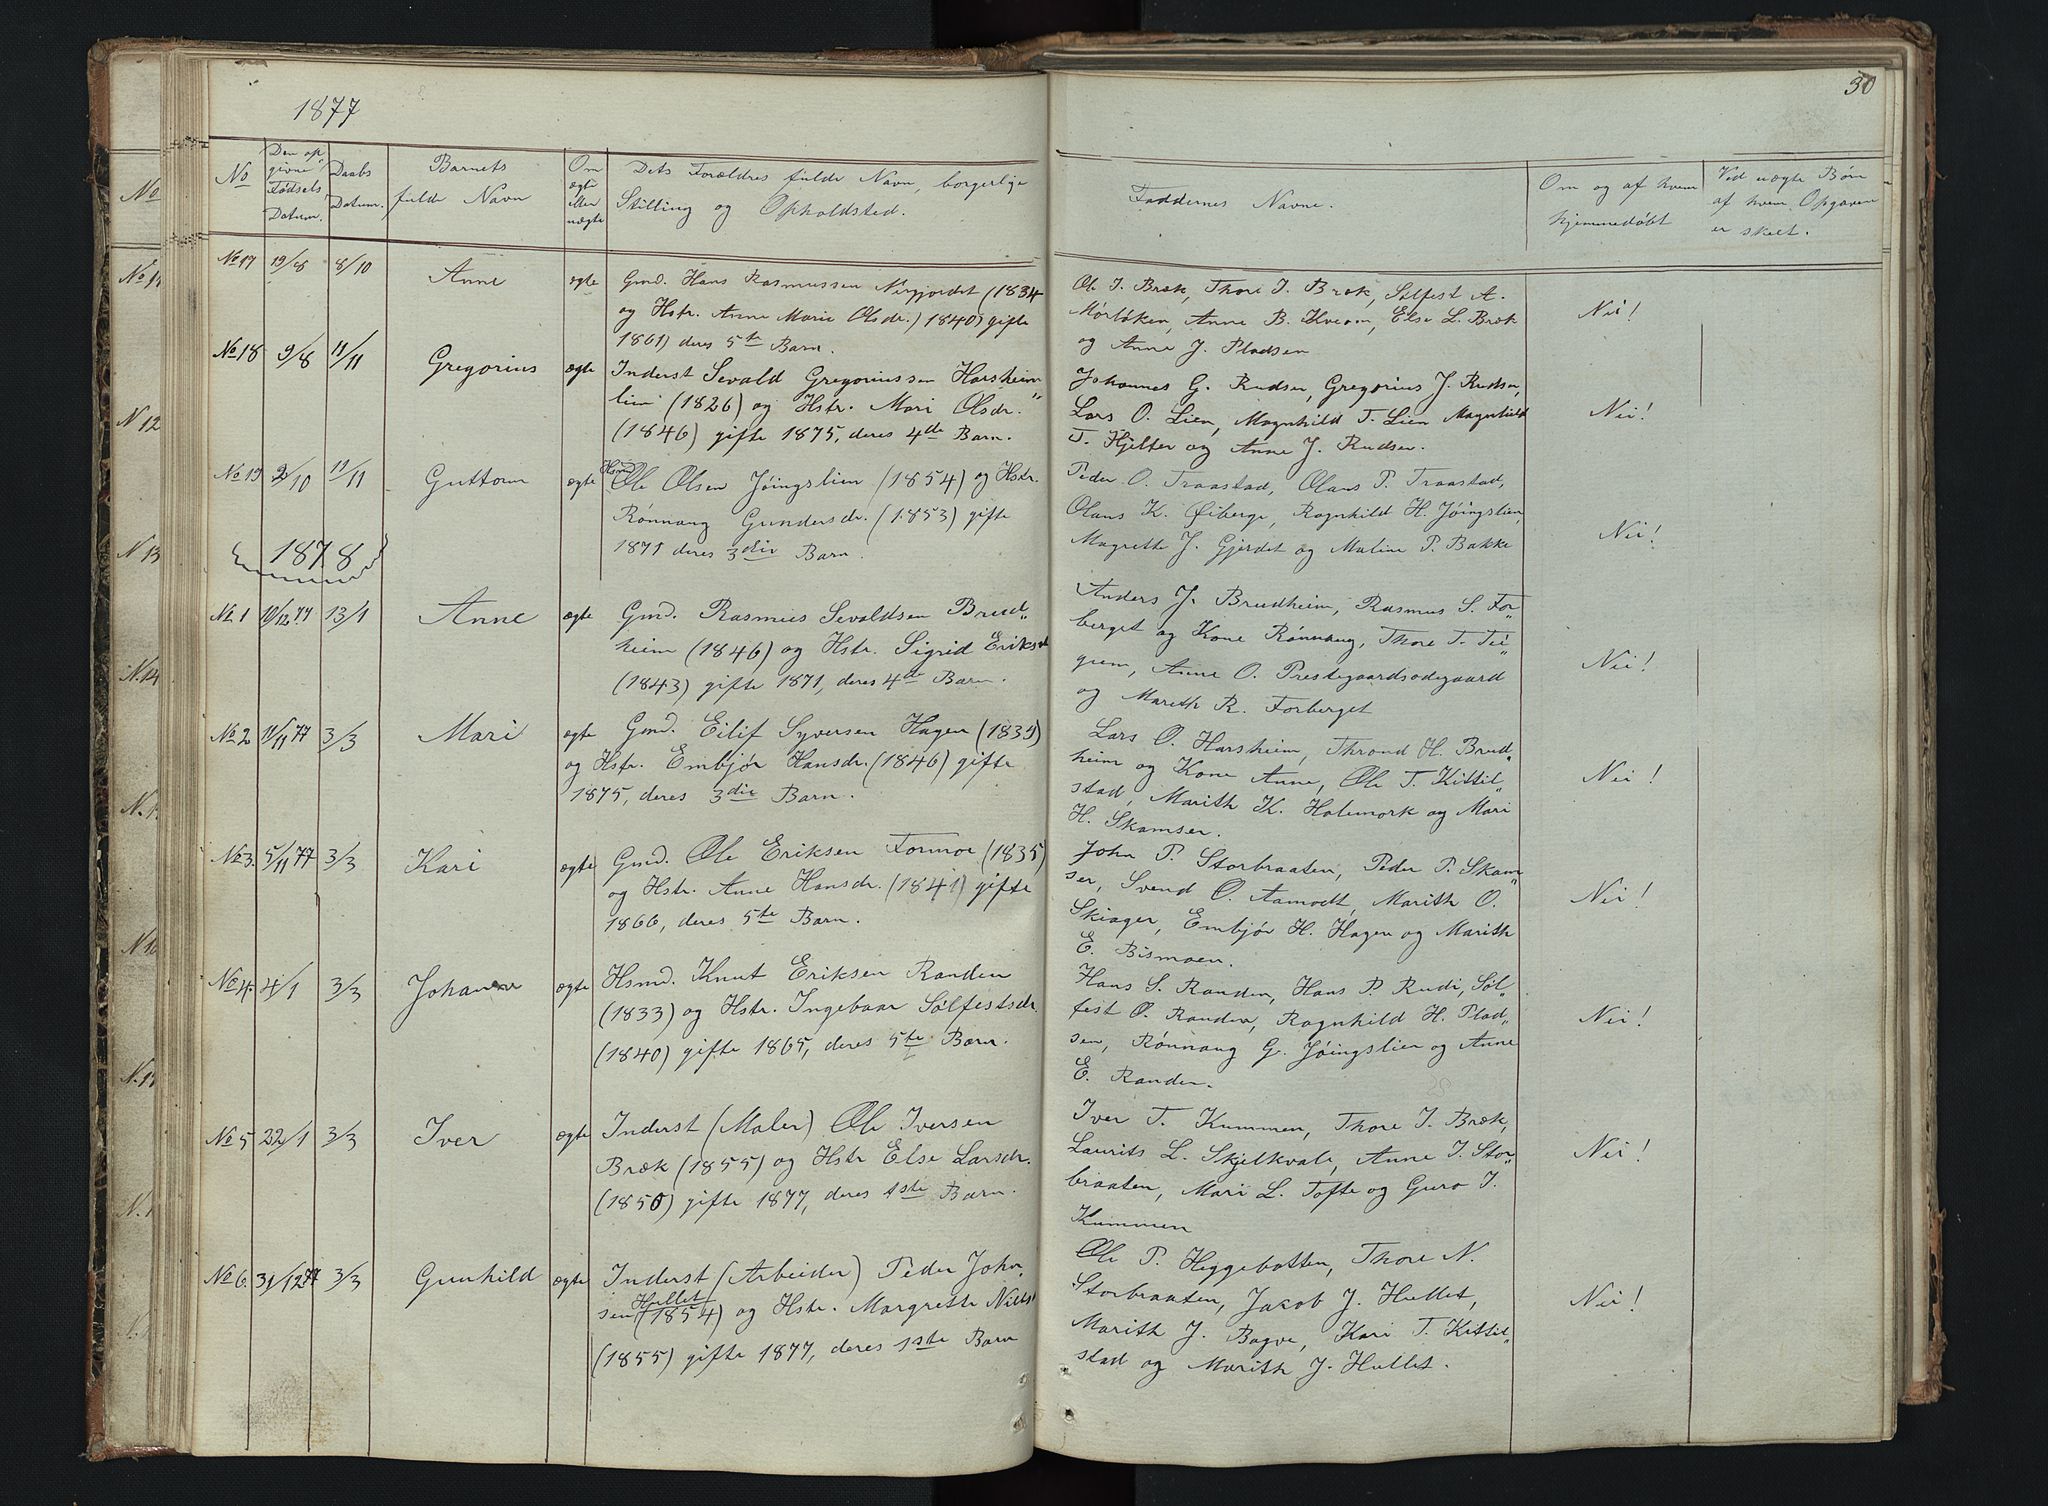 1877
30
No
Den op-
givne
Fødsels
Datum.
Daabs
Datum.
Barnets
fulde Navn
Om
ægte
eller
uægte
Dets Forældres fulde Navn, borgerlige
Stilling og Opholdsted.
Faddernes Navne.
Om og af hvem
hjemmedøbt
Ved uægte Børn
af hvem Opgaven
er skeet.
No 17 19/8 8/10 Anne ægte
Gmd. Hans Rasmussen (1834
og Hstr. Anne Marie Olsdr.) 1840) gifte
1861) deres 5te Barn.
Ole I. Bræk, Thore I. Bræk, Sølfest A.
Mørløken, Anne B. Kveom, Else L. Bræk
og Anne J. Pladsen
Nei!
No 18 9/8 11/11 Gregorius ægte
Inderst Sevald Gregoriussen Harsheim
lien (1826) og Hstr. Mari Olsdr.
(1846) gifte 1875, deres 4de Barn.
Johannes G. Rudsen, Gregorius J. Rudsen,
Lars O. Lien, Magnhild T. Lien Magnhild
T. Hjelter og Anne J. Rudsen.
Nei!
No 19 2/10 11/11 Guttorm ægte
Hsmd
Ole Olsen Jøingslien (1854) og Hstr.
Rønnaug Gundersdr. (1853) gifte
1871 deres 3die Barn.
Peder O. Traastad, Olaus P. Traastad,
Olaus K. Øiberge, Ragnhild H. Jøingslien,
Magrethe J. Gjerdet og Maline P. Bakke
Nei!
1878
No 1 10/12 77 13/1 Anne ægte
Gmd. Rasmus Sevaldsen Brud„
heim (1846) og Hstr. Sigrid Eriksd
(1843) gifte 1871, deres 4de Barn.
Anders J. Brudheim, Rasmus S. For„
berget og Kone Rønnaug, Thore T. Tei„
grem, Anne O. Prestegaardsødegaard
og Marith R. Forberget
Nei!
No 2 11/11 77 3/3 Mari ægte
Gmd. Eilif Syversen Hagen (1839)
og Hstr. Embjør Hansdr. (1846) gifte
1875, deres 3die Barn.
Lars O. Harsheim, Thrond H. Brud„
heim og Kone Anne, Ole T. Kittil„
stad, Marith K. Holemork og Mari
H. Skamser.
Nei!
No 3. 5/11 77 3/3 Kari ægte
Gmd. Ole Eriksen Formoe (1835)
og Hstr. Anne Hansdr. (1841) gifte
1866, deres 5te Barn.
John P. Storbraaten, Peder P. Skam„
ser, Svend O. Aamodt, Marith O.
Skiager, Embjør H. Hagen og Marith
E. Bismoen.
Nei!
No 4. 4/1 3/3 Johanne ægte
Hsmd. Knut Eriksen Randen
(1833) og Hstr. Ingebaar Sølfestsdr.
(1840) gifte 1865, deres 5te Barn.
Hans S. Randen, Hans P. Rudi, Søl„
fest O. Randen, Ragnhild H. Plad„
sen, Rønnaug G. Jøingslien og Anne
E. Randen.
Nei!
No 5 22/1 3/3 Iver ægte
Inderst (Maler) Ole Iversen
Bræk (1855) og Hstr Else Larsdr.
(1850) gifte 1877, deres 1ste Barn.
Iver T. Kummen, Thore I. Bræk,
Laurits L. Skjelkvale, Anne I. Stor„
braaten, Mari L. Tofte og Guro I.
Kummen
Nei!
No 6. 31/12 77 3/3 Gunhild ægte
Inderst (Arbeider) Peder John„
Hullet
sen (1854) og Hstr. Margrethe Nilsd
(1855) gifte 1877, deres 1ste Barn
Ole P. Heggebotten, Thore N.
Storbraaten, Jacob J. Hullet,
Marith J. Bagve, Kari T. Kittil„
stad og Marith J. Hullet.
Nei!